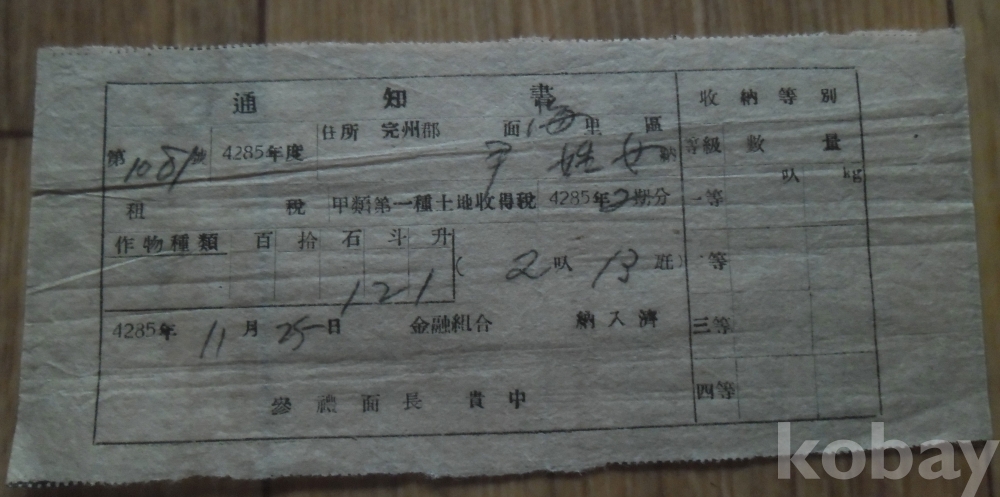 通知書
住所 完州郡 面 里 區
第1081號 4285年度 姓 納
租稅 甲類第一種土地收得稅 4285年2期分
作物種類 百 拾 石 斗 升
1 2 1 ( 2叺 13 瓩)
4285年 11月 25日 金融組合 納入濟
參禮面長 貴中
收納等別
等級 數量
叺 kg
一等
二等
三等
四等
kobay